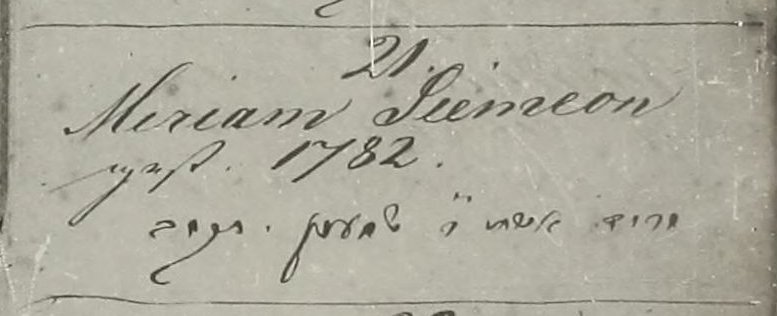 21.
Meriam Siemeon
gest. 1782.
מרים אשת ר' שמעון. תקמב